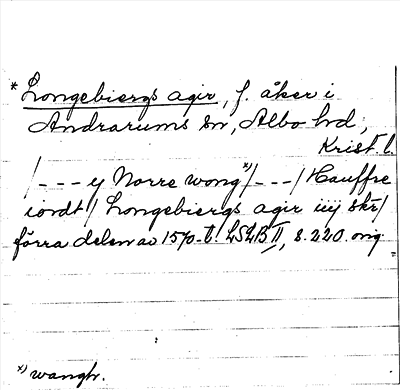 * Longebiergs agir, f. åker i
Andrarums sn, Albo hd,
Krist. l.
/--- y Norre wong *)/---/ Hauffre
iordt/ Longebiergs agir iiij skr/
förra delen av 1570-t. LSLB II, s. 220. orig
*) wangh.